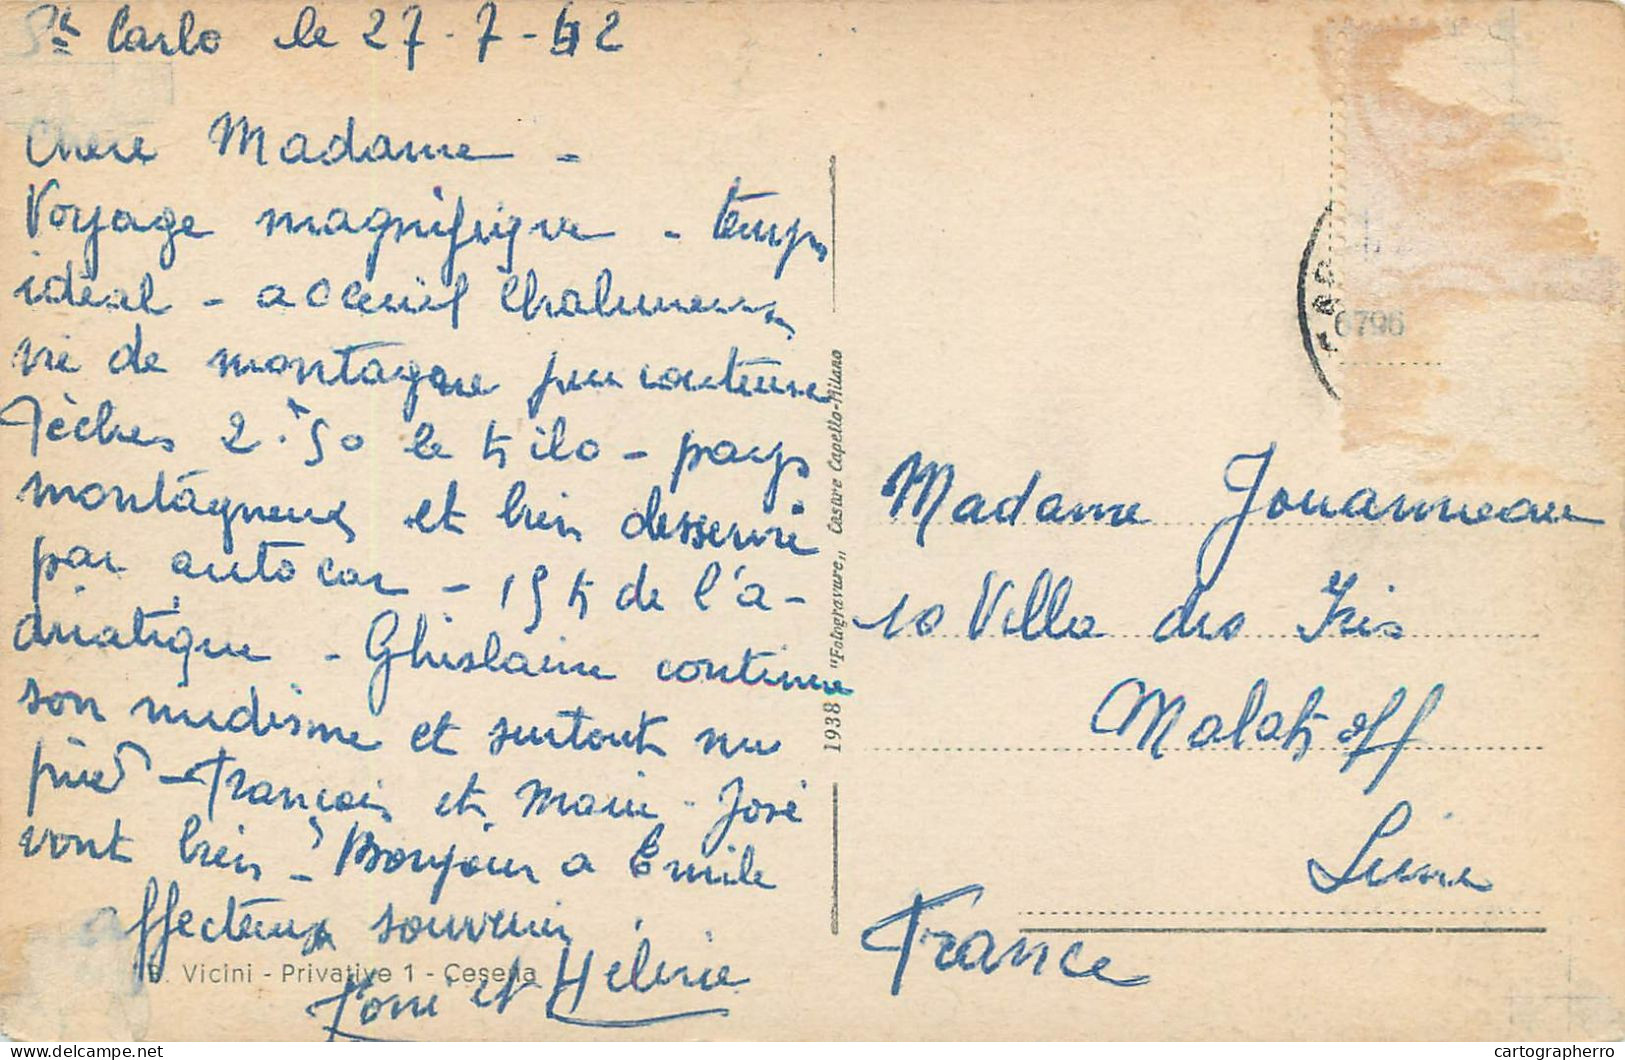 St Carlo le 27-7-62
Chère Madame -
Voyage magnifique - temps
idéal - accueil chaleureux
vie de montagne peu couteuse
Pèches 2.50 le kilo - pays
montagneux et bien desservi
par autocar - 15 k de l'a-
driatique - Ghislaine continue
son nudisme et surtout nu
pied - François et Marie-José
vont bien - Bonjour a Emile
affectueux souvenir,
et Hélène
B. Vicini - Privative 1 - Cesena
1938 "Fotogravure" Cesare Capello-Milano
6796
Madame Jouanneau
10 Villa des Iris
Malakoff
Seine
France
cartographerro